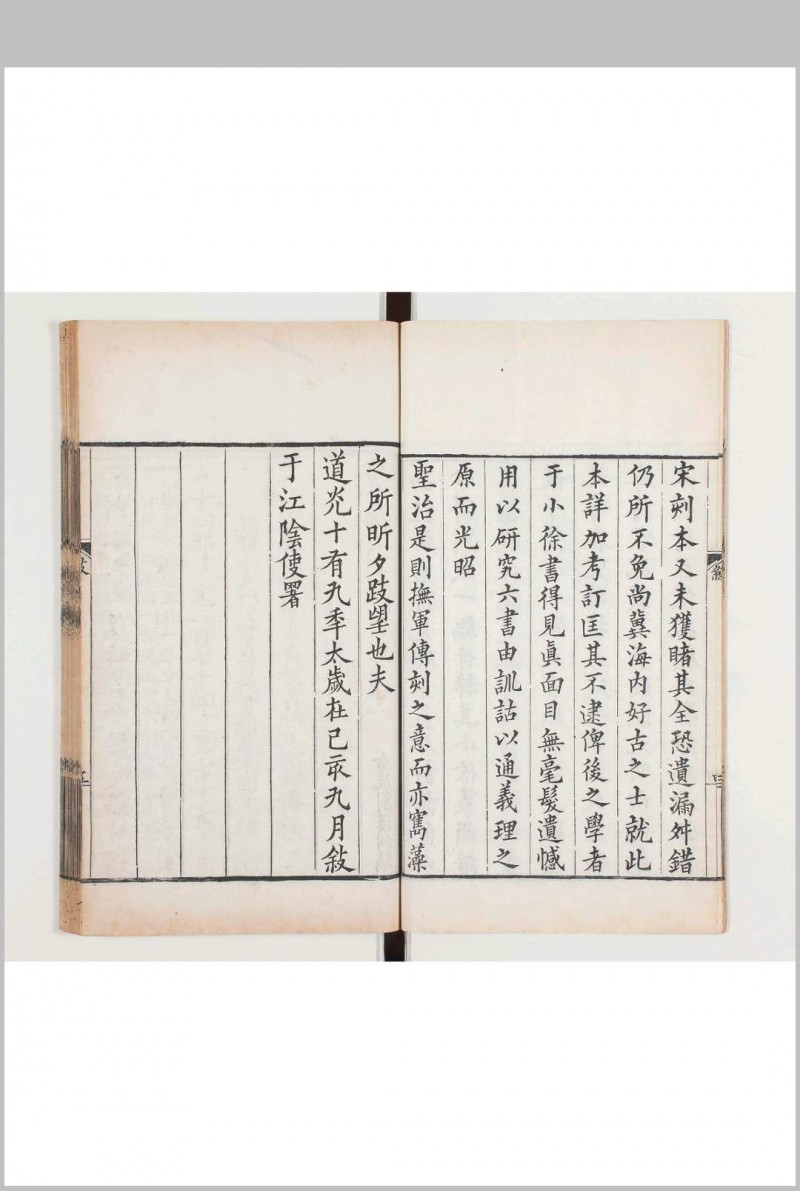 宋刻本又未獲睹其全恐遺漏舛錯
仍所不免尚冀海内好古之士就此
本詳加考訂匡其不逮俾後之學者
于小徐書得見眞面目無毫髮遺憾
用以研究六書由訓詁以通義理之
原而光昭
聖治是則撫軍傳刻之意而亦寯藻
之所昕夕跂望也夫
道光十有九秊太歲在己亥九月敍
于江陰使署